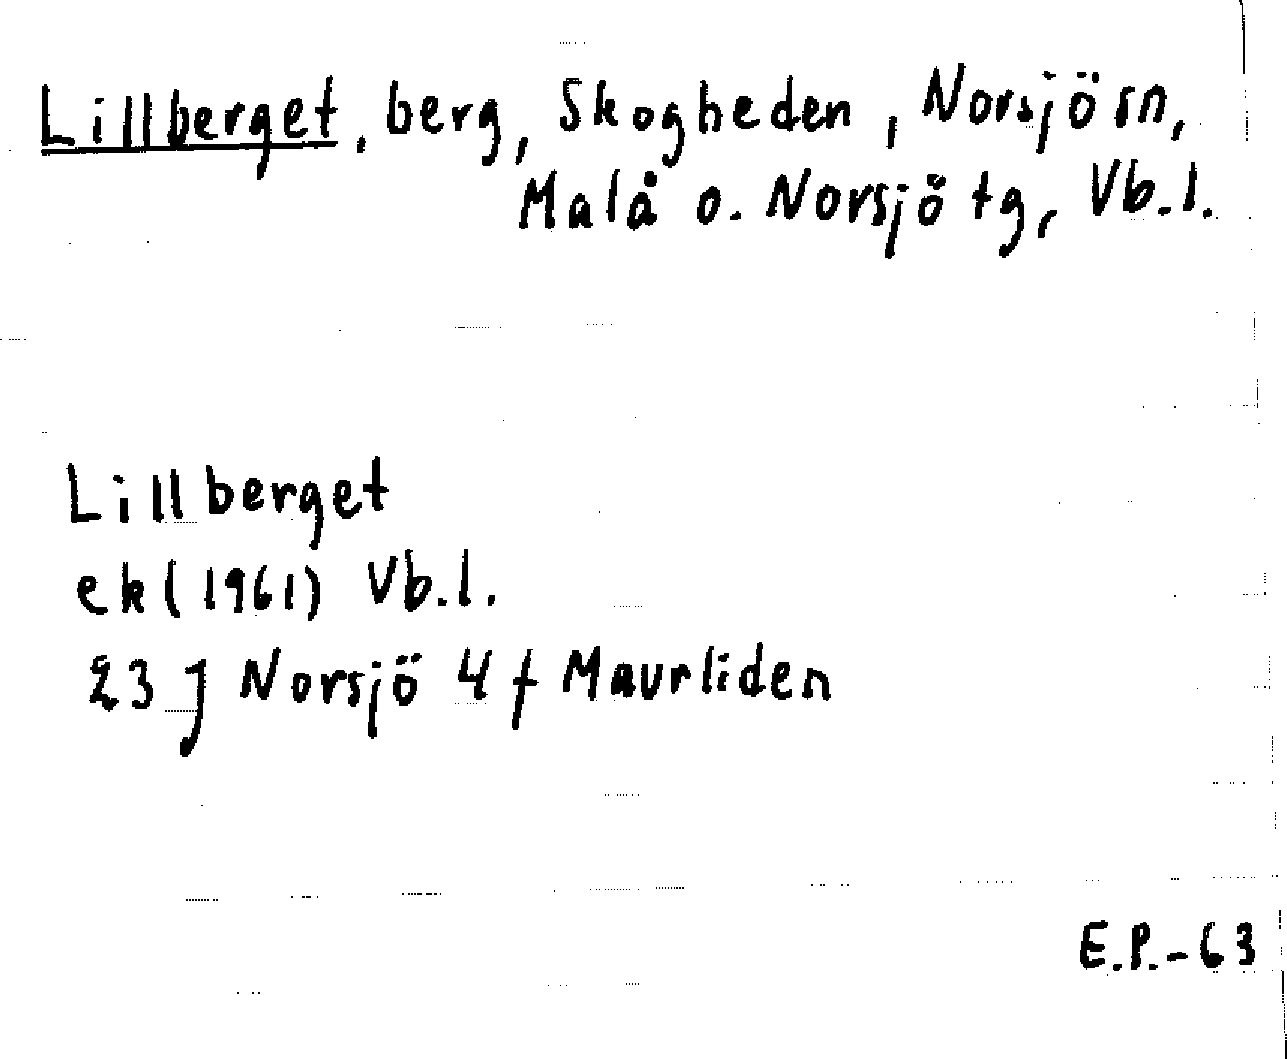 Lillberget, berg, Skogheden, Norsjö sn,
Malå o. Norsjö tg, Vb.l.
Lillberget
ek (1961) Vb.l.
23 J Norsjö 4 f Maurliden
E.P.-63